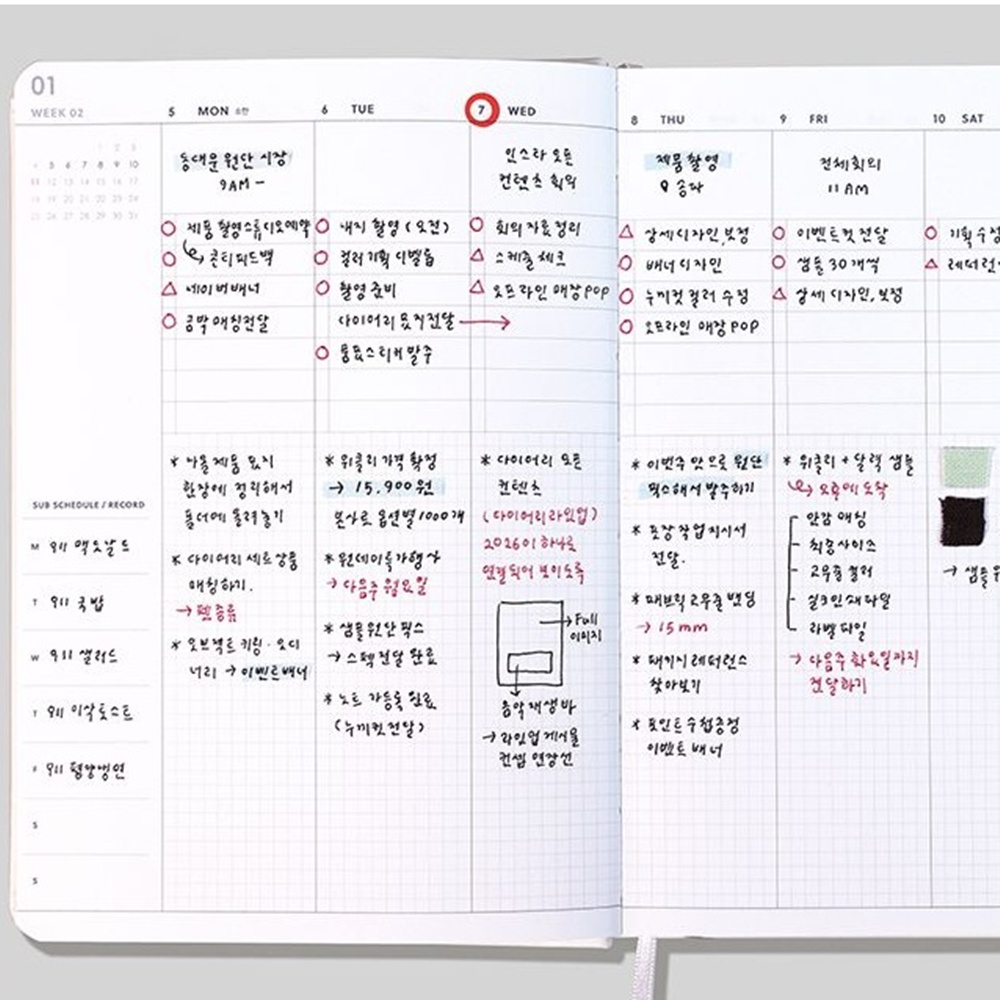 01
WEEK 02
1 2 3
4 5 6 7 8 9 10
11 12 13 14 15 16 17
18 19 20 21 22 23 24
25 26 27 28 29 30 31
SUB SCHEDULE / RECORD
M 점심 맥도날드
T 점심 국밥
W 점심 샐러드
T 점심 이삭토스트
F 점심 평양냉면
S
S
5 MON 소한
동대문 원단 시장
9AM -
제품 촬영 스튜디오 예약
콘티 피드백
네이버 배너
금박 매칭 전달
* 나올 제품 표지
한장에 정리해서
폴더에 올려놓기
* 다이어리 세트 상품
매칭하기.
→ 펜 종류
* 오브젝트 키링 · 오디
너리 → 이벤트 배너
6 TUE
내지 촬영 (오전)
컬러 기획 디벨롭
촬영 준비
다이어리 뮤직 전달 →
품표 스티커 발주
* 위클리 가격 확정
→ 15.900원
본사로 옵션별 1000개
* 원데이 특가 행사
→ 다음주 월요일
* 샘플 원단 픽스
→ 스펙 전달 완료
* 노트 가등록 완료
(누끼컷 전달)
7 WED
인스타 오픈
컨텐츠 회의
회의 자료 정리
스케줄 체크
오프라인 매장 POP
* 다이어리 오픈
컨텐츠
(다이어리 라인업)
2026이 하나로
연결되어 보이도록
→ Full
이미지
음악 재생 바
→ 라인업 게시물
컨셉 연장선
8 THU
제품 촬영
송파
상세 디자인, 보정
배너 디자인
누끼컷 컬러 수정
오프라인 매장 POP
* 이번주 안으로 원단
픽스해서 발주하기
* 포장 작업지시서
전달.
* 패브릭 고무줄 밴딩
→ 15mm
* 패키지 레퍼런스
찾아보기
* 포인트 수첩 증정
이벤트 배너
9 FRI
전체 회의
11 AM
이벤트컷 전달
샘플 30개씩
상세 디자인, 보정
* 위클리 + 달력 샘플
오후에 도착
안감 매칭
최종 사이즈
고무줄 컬러
실크인쇄 파일
라벨 파일
→ 다음주 화요일까지
전달하기
10 SAT
기획 수정
레퍼런
→ 샘플